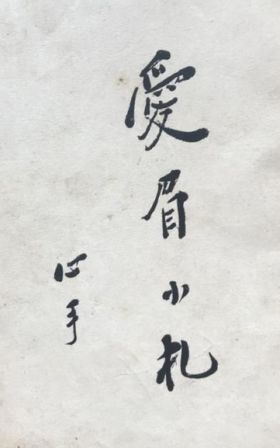 愛眉小札
心手